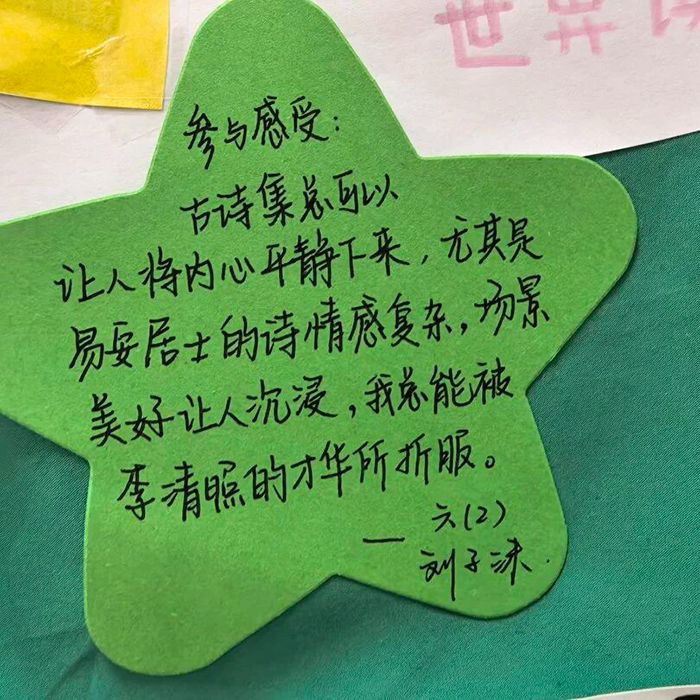 世界
参与感受：
古诗集总可以
让人将内心平静下来，尤其是
易安居士的诗情感复杂，场景
美好让人沉浸，我总能被
李清照的才华所折服。
— 六(2)
刘子沫.